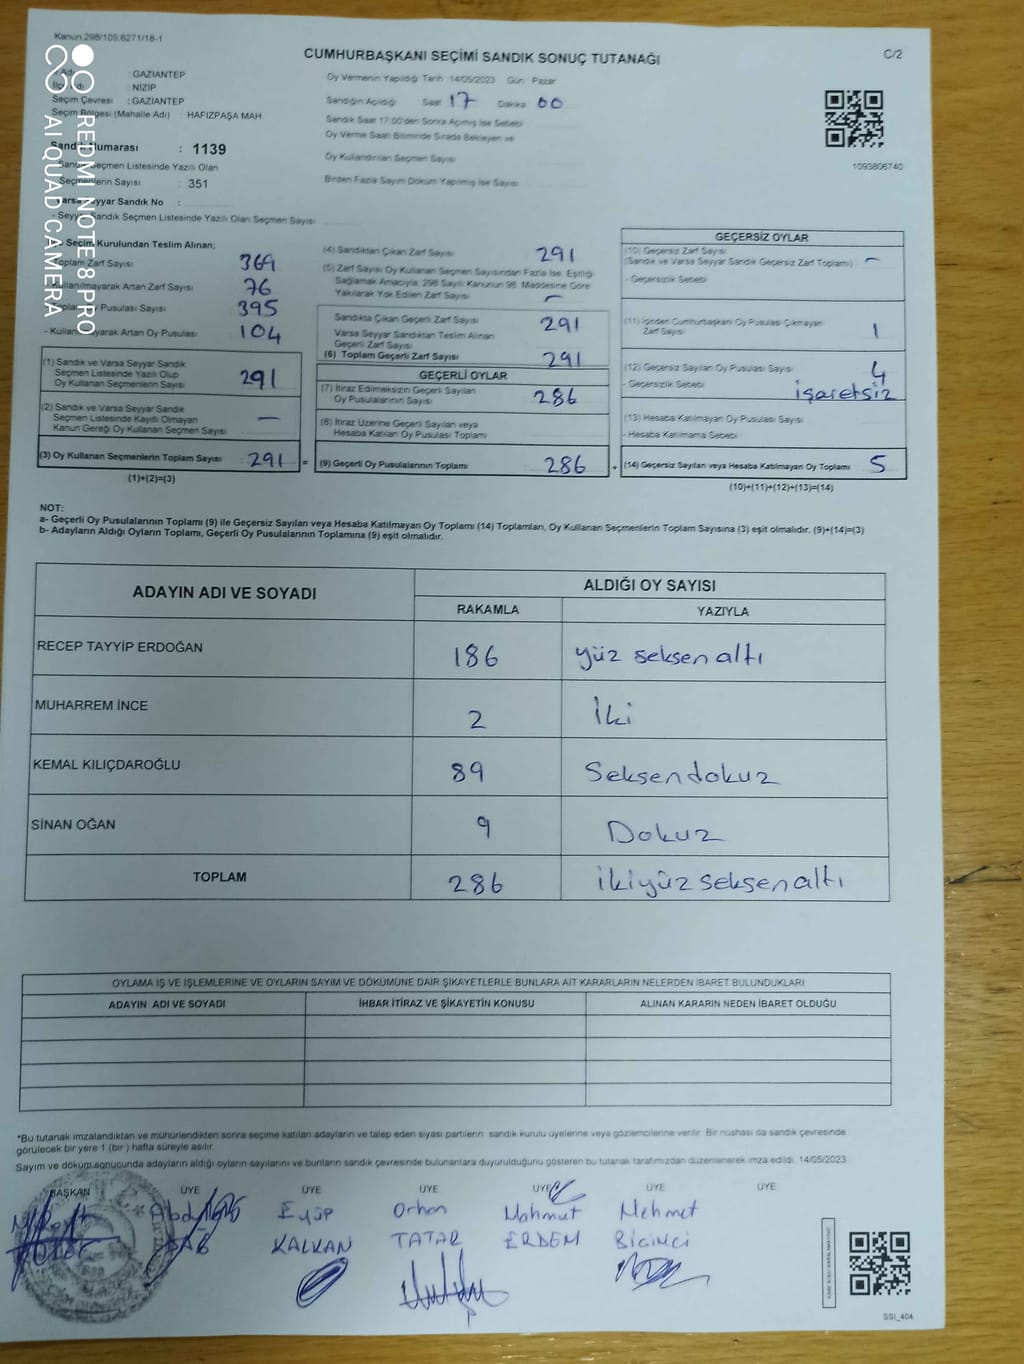 Kanun:298/105;6271/18-1
CUMHURBAŞKANI SEÇİMİ SANDIK SONUÇ TUTANAĞI
C/2
: GAZIANTEP
: NİZİP
Seçim Çevresi : GAZIANTEP
Seçim Bölgesi (Mahalle Adı) HAFIZPAŞA MAH.
Sandık Numarası : 1139
Sandık Seçmen Listesinde Yazılı Olan
Seçmenlerin Sayısı : 351
Varsa Seyyar Sandık No :
- Seyyar Sandık Seçmen Listesinde Yazılı Olan Seçmen Sayısı
Oy Vermenin Yapıldığı Tarih :14/05/2023 Gün : Pazar
Sandığın Açıldığı Saat 17 Dakika 00
Sandık Saat 17:00'den Sonra Açılmış İse Sebebi
Oy Verme Saati Bitiminde Sırada Bekleyen ve
Oy Kullandırılan Seçmen Sayısı
Birden Fazla Sayım Döküm Yapılmış İse Sayısı
1093806740
REDMI NOTE 8 PRO
AI QUAD CAMERA
Seçim Kurulundan Teslim Alınan;
Toplam Zarf Sayısı 369
Kullanılmayarak Artan Zarf Sayısı 76
Toplam Oy Pusulası Sayısı 395
- Kullanılmayarak Artan Oy Pusulası 104
(1) Sandık ve Varsa Seyyar Sandık
Seçmen Listesinde Yazılı Olup
Oy Kullanan Seçmenlerin Sayısı 291
(2) Sandık ve Varsa Seyyar Sandık
Seçmen Listesinde Kayıtlı Olmayan
Kanun Gereği Oy Kullanan Seçmen Sayısı —
(3) Oy Kullanan Seçmenlerin Toplam Sayısı 291 =
(1)+(2)=(3)
(4) Sandıktan Çıkan Zarf Sayısı 291
(5) Zarf Sayısı Oy Kullanan Seçmen Sayısından Fazla İse, Eşitliği
Sağlamak Amacıyla, 298 Sayılı Kanunun 98. Maddesine Göre
Yakılarak Yok Edilen Zarf Sayısı —
Sandıkta Çıkan Geçerli Zarf Sayısı 291
Varsa Seyyar Sandıktan Teslim Alınan
Geçerli Zarf Sayısı
(6) Toplam Geçerli Zarf Sayısı 291
GEÇERLİ OYLAR
(7) İtiraz Edilmeksizin Geçerli Sayılan
Oy Pusulalarının Sayısı 286
(8) İtiraz Üzerine Geçerli Sayılan veya
Hesaba Katılan Oy Pusulası Toplamı
(9) Geçerli Oy Pusulalarının Toplamı 286 +
GEÇERSİZ OYLAR
(10) Geçersiz Zarf Sayısı
(Sandık ve Varsa Seyyar Sandık Geçersiz Zarf Toplamı) —
- Geçersizlik Sebebi
(11) İçinden Cumhurbaşkanı Oy Pusulası Çıkmayan
Zarf Sayısı 1
(12) Geçersiz Sayılan Oy Pusulası Sayısı 4
- Geçersizlik Sebebi işaretsiz
(13) Hesaba Katılmayan Oy Pusulası Sayısı
- Hesaba Katılmama Sebebi
(14) Geçersiz Sayılan veya Hesaba Katılmayan Oy Toplamı 5
(10)+(11)+(12)+(13)=(14)
NOT:
a- Geçerli Oy Pusulalarının Toplamı (9) ile Geçersiz Sayılan veya Hesaba Katılmayan Oy Toplamı (14) Toplamları, Oy Kullanan Seçmenlerin Toplam Sayısına (3) eşit olmalıdır. (9)+(14)=(3)
b- Adayların Aldığı Oyların Toplamı, Geçerli Oy Pusulalarının Toplamına (9) eşit olmalıdır.
ADAYIN ADI VE SOYADI
ALDIĞI OY SAYISI
RAKAMLA YAZIYLA
RECEP TAYYİP ERDOĞAN 186 yüz seksen altı
MUHARREM İNCE 2 İki
KEMAL KILIÇDAROĞLU 89 Seksendokuz
SİNAN OĞAN 9 Dokuz
TOPLAM 286 ikiyüz seksen altı
OYLAMA İŞ VE İŞLEMLERİNE VE OYLARIN SAYIM VE DÖKÜMÜNE DAİR ŞİKAYETLERLE BUNLARA AİT KARARLARIN NELERDEN İBARET BULUNDUKLARI
ADAYIN ADI VE SOYADI İHBAR İTİRAZ VE ŞİKAYETİN KONUSU ALINAN KARARIN NEDEN İBARET OLDUĞU
*Bu tutanak imzalandıktan ve mühürlendikten sonra seçime katılan adayların ve talep eden siyasi partilerin sandık kurulu üyelerine veya gözlemcilerine verilir. Bir nüshası da sandık çevresinde
görülecek bir yere 1 (bir ) hafta süreyle asılır.
Sayım ve döküm sonucunda adayların aldığı oyların sayılarını ve bunların sandık çevresinde bulunanlara duyurulduğunu gösteren bu tutanak tarafımızdan düzenlenerek imza edildi. 14/05/2023
BAŞKAN ÜYE ÜYE ÜYE ÜYE ÜYE ÜYE
Eyüp Orhan Mahmut Mehmet
KALKAN TATAR ERDEM Biçinci
SSI_404